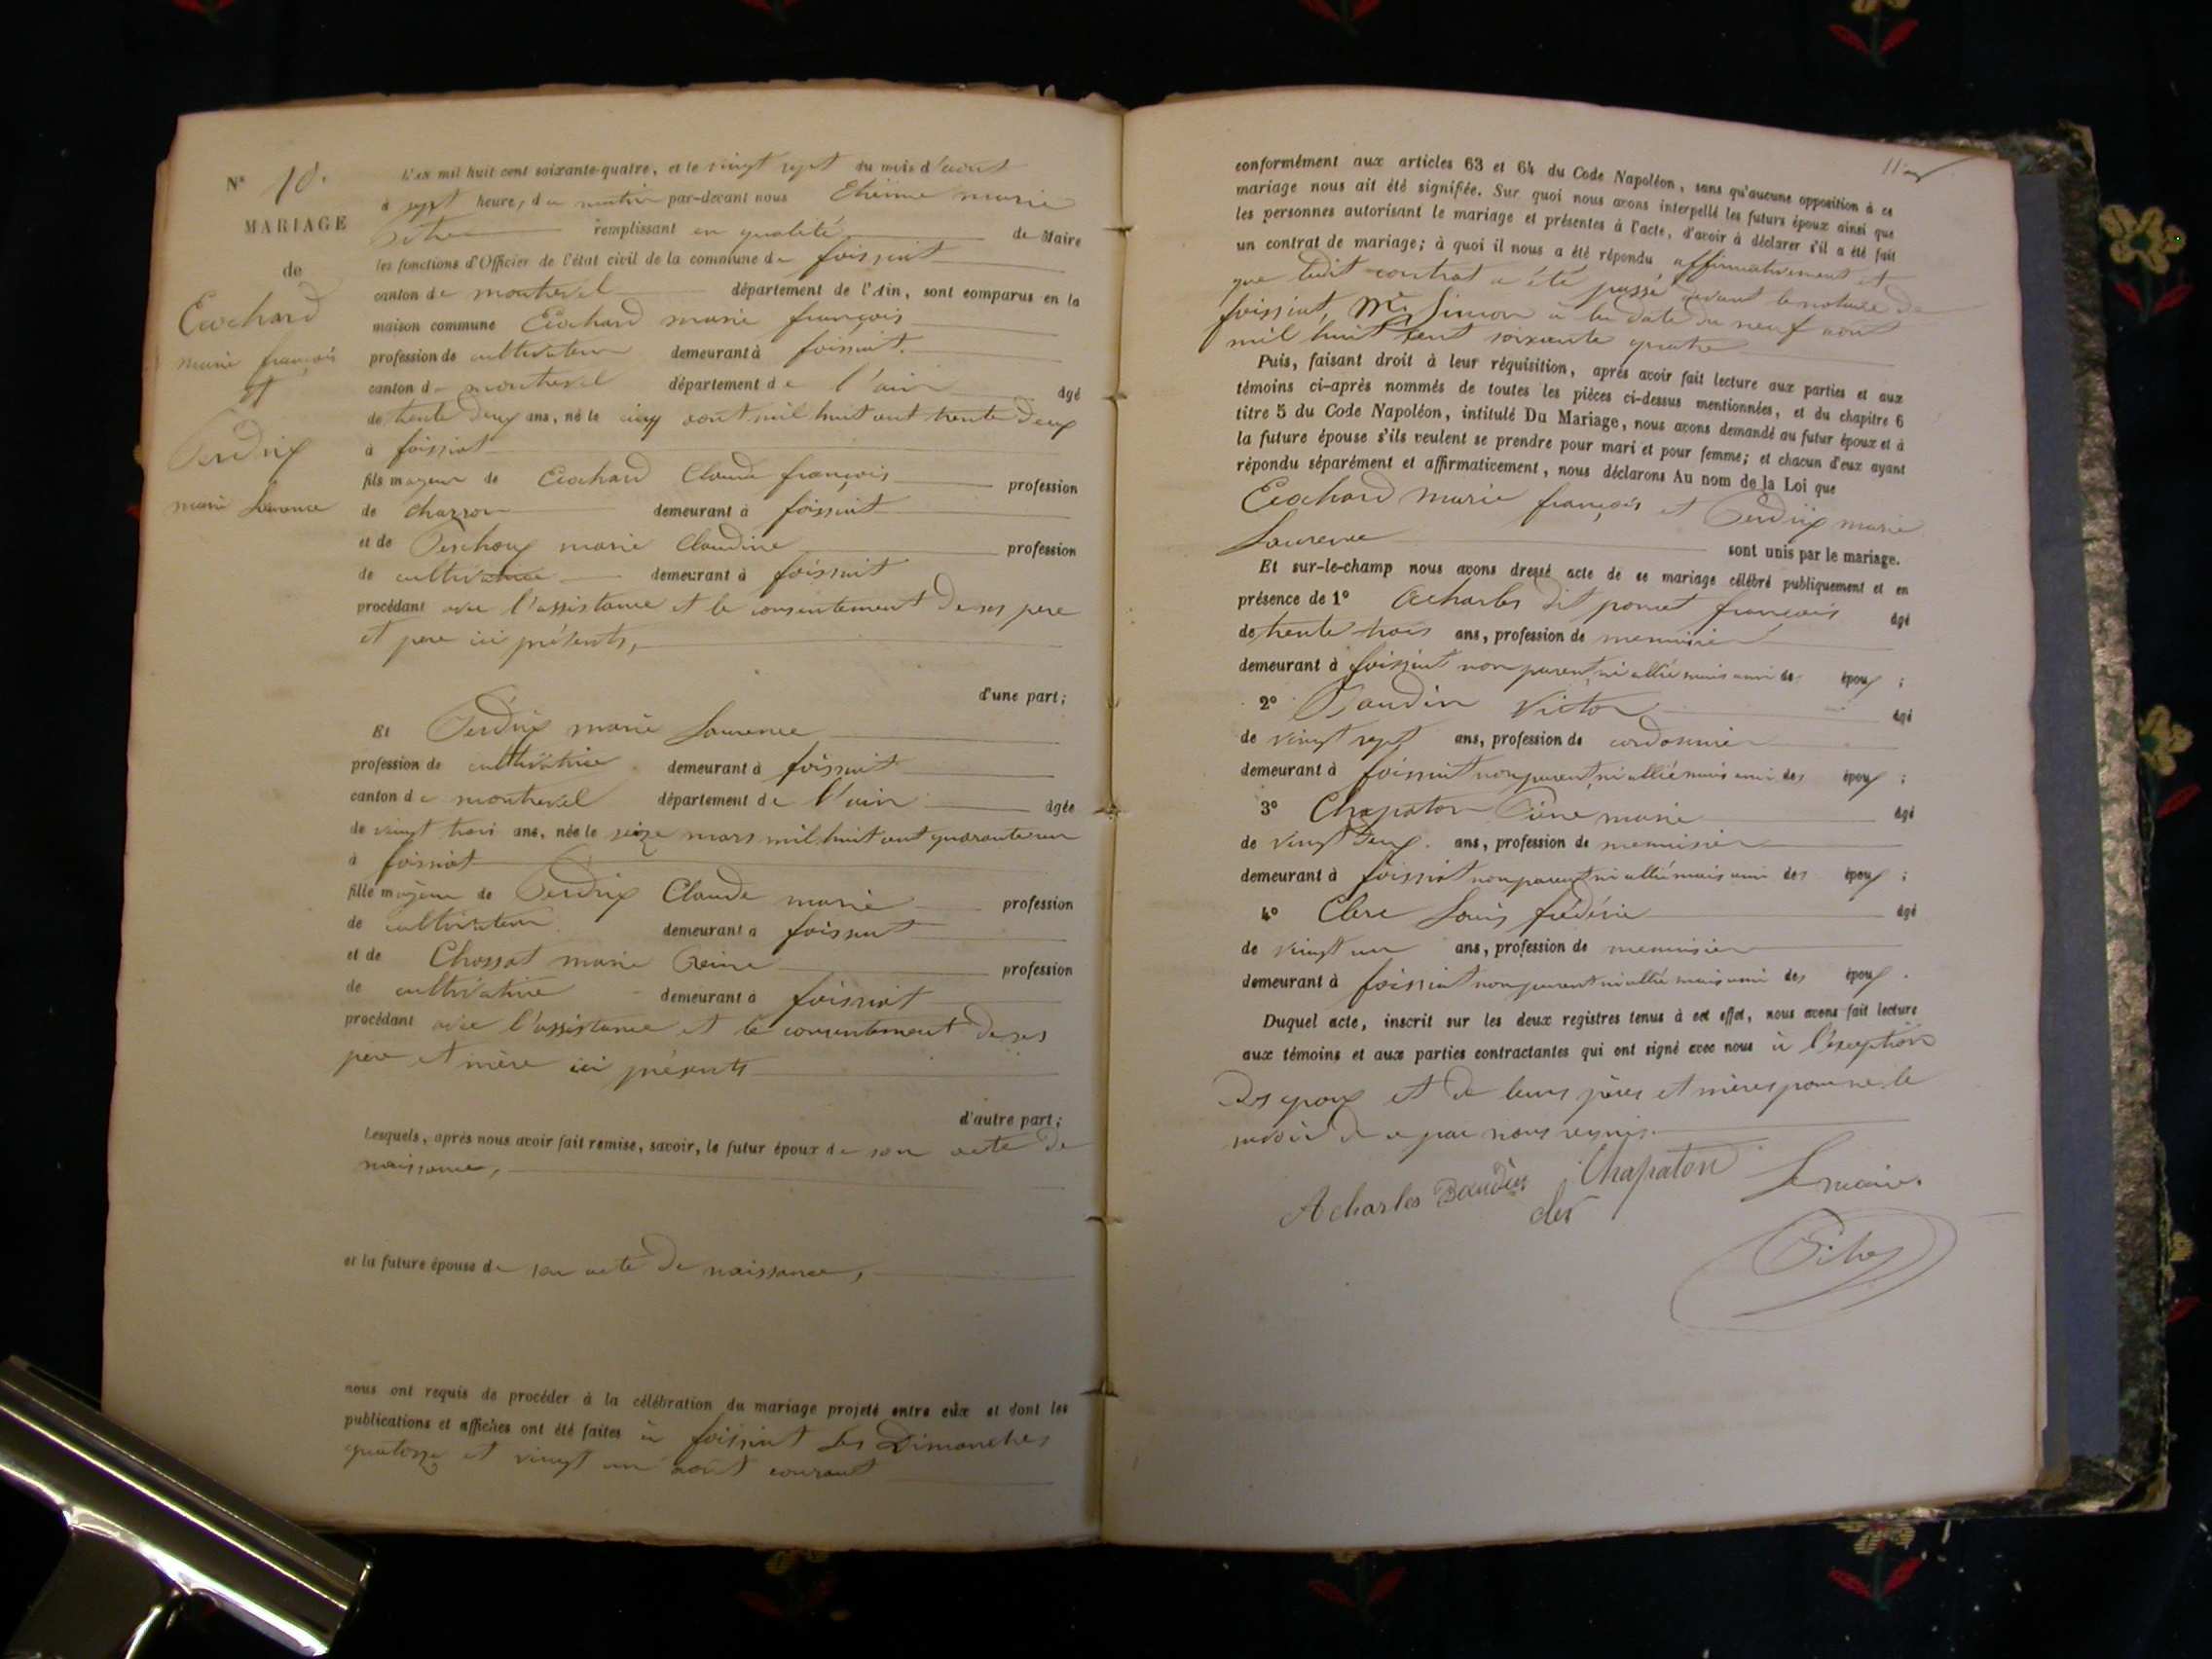 N° 10.
MARIAGE
de
Cochard
marie françois
et
Perdrix
marie Laurence
L'an mil huit cent soixante-quatre, et le vingt sept du mois d'aout
à sept heures du matin par-devant nous marie
remplissant en qualité de Maire
les fonctions d'Officier de l'état civil de la commune de foissiat
canton de montrevel département de l'Ain, sont comparus en la
maison commune Cochard marie françois
profession de cultivateur demeurant à foissiat.
canton de montrevel département de l'ain âgé
de trente deux ans, né le cinq aout mil huit cent trente deux
à foissiat
fils majeur de Cochard Claude françois profession
de charron demeurant à foissiat
et de marie Claudine profession
de cultivatrice demeurant à foissiat
procédant avec l'assistance et le consentement de ses pere
et pere ici présents,
d'une part;
Et Perdrix marie Laurence
profession de cultivatrice demeurant à foissiat
canton de montrevel département de l'ain âgée
de vingt trois ans, née le seize mars mil huit cent quarante un
à foissiat
fille majeure de Perdrix Claude marie profession
de cultivateur demeurant à foissiat
et de Chossat marie Reine profession
de cultivatrice demeurant à foissiat
procédant avec l'assistance et le consentement de ses
pere et mère ici présents
d'autre part;
Lesquels, après nous avoir fait remise, savoir, le futur époux de son acte de
naissance,
et la future épouse de son acte de naissance,
nous ont requis de procéder à la célébration du mariage projeté entre eux et dont les
publications et affiches ont été faites à foissiat les Dimanches
quatorze et vingt un aout courant
conformément aux articles 63 et 64 du Code Napoléon, sans qu'aucune opposition à ce
mariage nous ait été signifiée. Sur quoi nous avons interpellé les futurs époux ainsi que
les personnes autorisant le mariage et présentes à l'acte, d'avoir à déclarer s'il a été fait
un contrat de mariage; à quoi il nous a été répondu affirmativement et
que ledit contrat a été passé devant le notaire de
foissiat, Me Simon à la date du neuf aout
mil huit cent soixante quatre
Puis, faisant droit à leur réquisition, après avoir fait lecture aux parties et aux
témoins ci-après nommés de toutes les pièces ci-dessus mentionnées, et du chapitre 6
titre 5 du Code Napoléon, intitulé Du Mariage, nous avons demandé au futur époux et à
la future épouse s'ils veulent se prendre pour mari et pour femme; et chacun d'eux ayant
répondu séparément et affirmativement, nous déclarons Au nom de la Loi que
Cochard marie françois et Perdrix marie
Laurence sont unis par le mariage.
Et sur-le-champ nous avons dressé acte de ce mariage célébré publiquement et en
présence de 1° Acharles dit poncet françois âgé
de trente trois ans, profession de menuisier
demeurant à foissiat non parent ni allié mais ami des époux ;
2° Baudin Victor âgé
de vingt sept ans, profession de cordonnier
demeurant à foissiat non parent ni allié mais ami des époux ;
3° Chapaton Pierre marie âgé
de vingt deux. ans, profession de menuisier
demeurant à foissiat non parent ni allié mais ami des époux ;
4° Clerc Louis frédéric âgé
de vingt un ans, profession de menuisier
demeurant à foissiat non parent ni allié mais ami des époux.
Duquel acte, inscrit sur les deux registres tenus à cet effet, nous avons fait lecture
aux témoins et aux parties contractantes qui ont signé avec nous à l'exception
des epoux et de leurs pères et mères pour ne le
savoir de ce par nous requis.
Acharles Baudin Chapaton Le maire.
cler